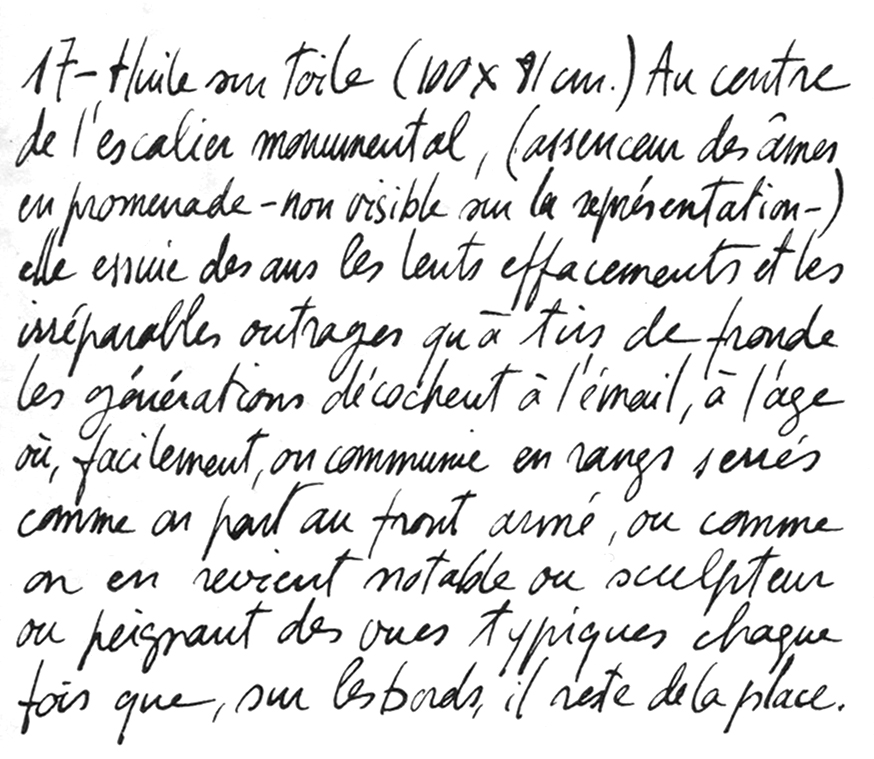 17-Huile sur toile (100 x 81 cm.) Au centre
de l'escalier monumental, (assenceur des âmes
en promenade -non visible sur la représentation-)
elle essuie des ans les lents effacements et les
irréparables outrages qu'à tirs de fronde
les générations décochent à l'émail, à l'âge
où, facilement, on communie en rangs serrés
comme on part au front armé, ou comme
on en revient notable ou sculpteur
ou peignant des vues typiques chaque
fois que, sur les bords, il reste de la place.